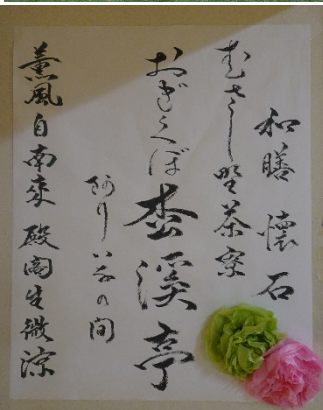 和膳 懐石
むさし野茶寮
おぎくぼ 杢溪亭
阿り以その間
薫風自南來 殿閣生微涼